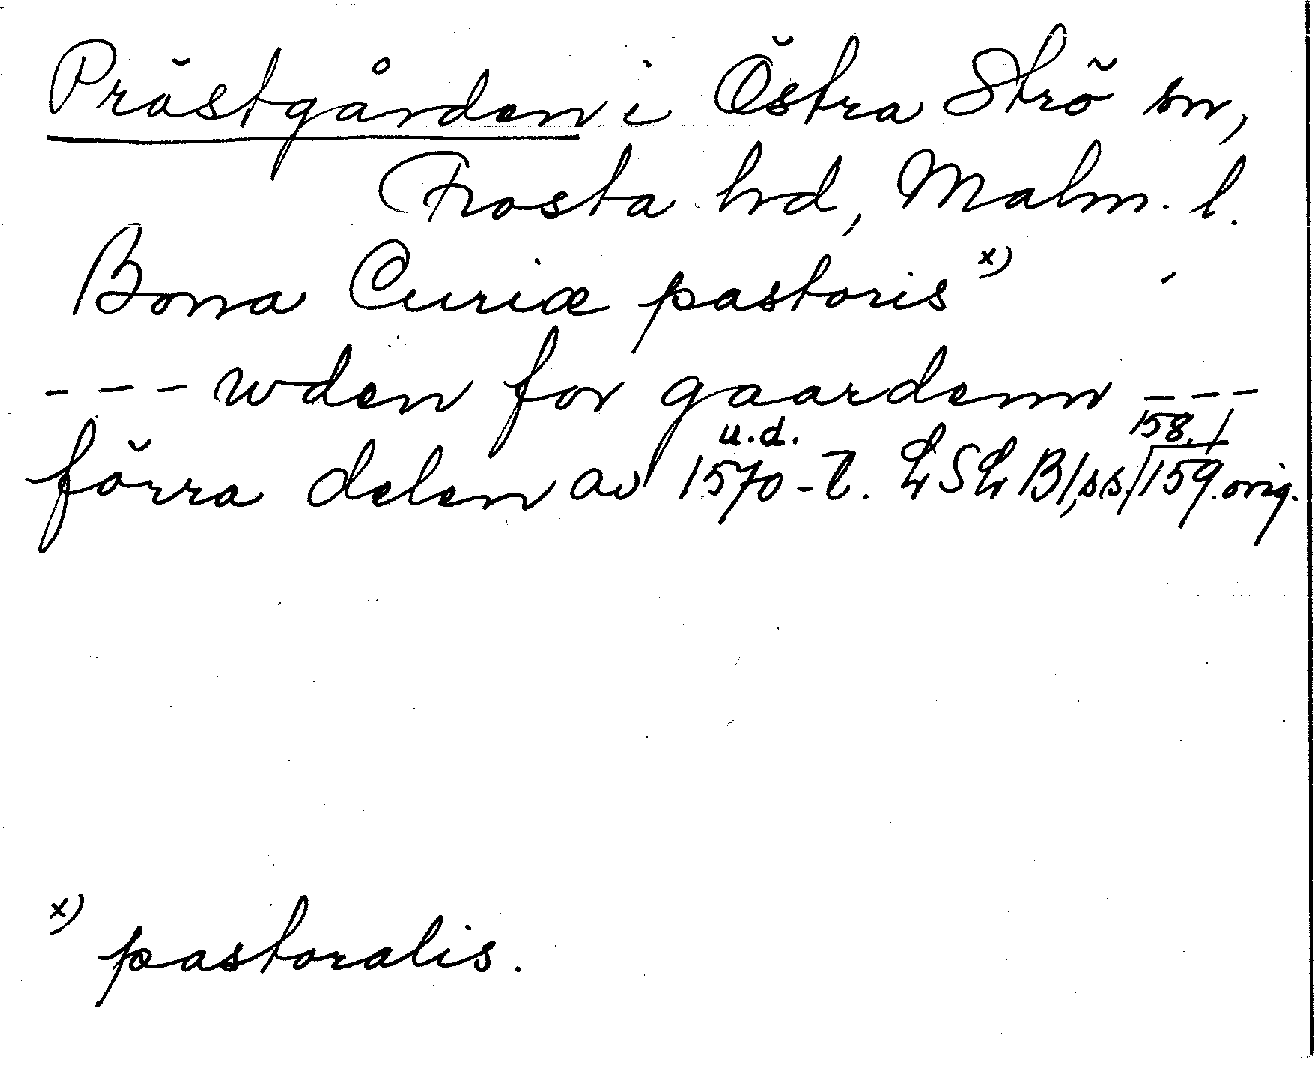 Prästgården i Östra Strö sn,
Frosta hrd, Malm. l.
Bona Curiæ pastoris x)
--- wden for gaardenn ---
u.d. 158, 1
förra delen av 1570-t. LSLB 1, ss. 159. orig.
x) pastoralis.